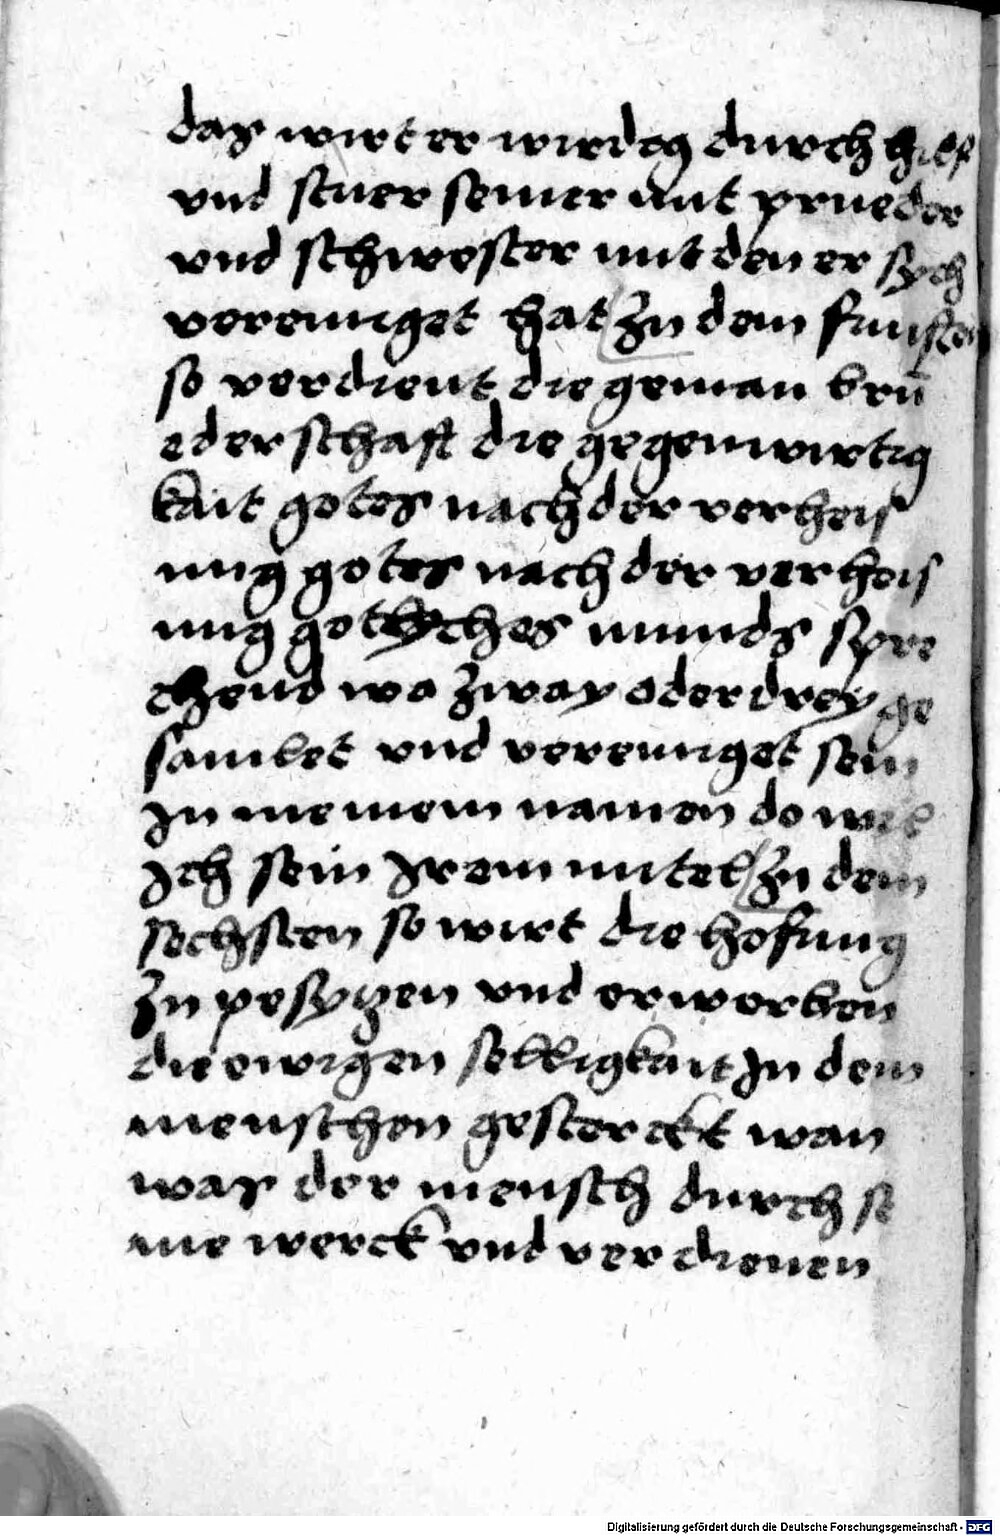 das wirt er wirdig durch hilf
und stuer seiner mit prueder
und schwester mit den er sych
vereiniget hat Zu dem funften
so verdient die geman bru
ederschaft die gegenwirtig
kait gotes nach der verheis
ung gotes nach der verheis
ung gotlyches munds spre
chend wo zway oder drey ge
samlet und vereiniget sein
In meinem namen do wil
Ich sein Irem mitel Zu dem
sechsten so wirt die hofung
Zu pesytzen und erwerben
die ewigen selligkait In dem
menschen gesterckt wan
was der mensch durch se
ine werck und verdienen
Digitalisierung gefördert durch die Deutsche Forschungsgemeinschaft - DFG